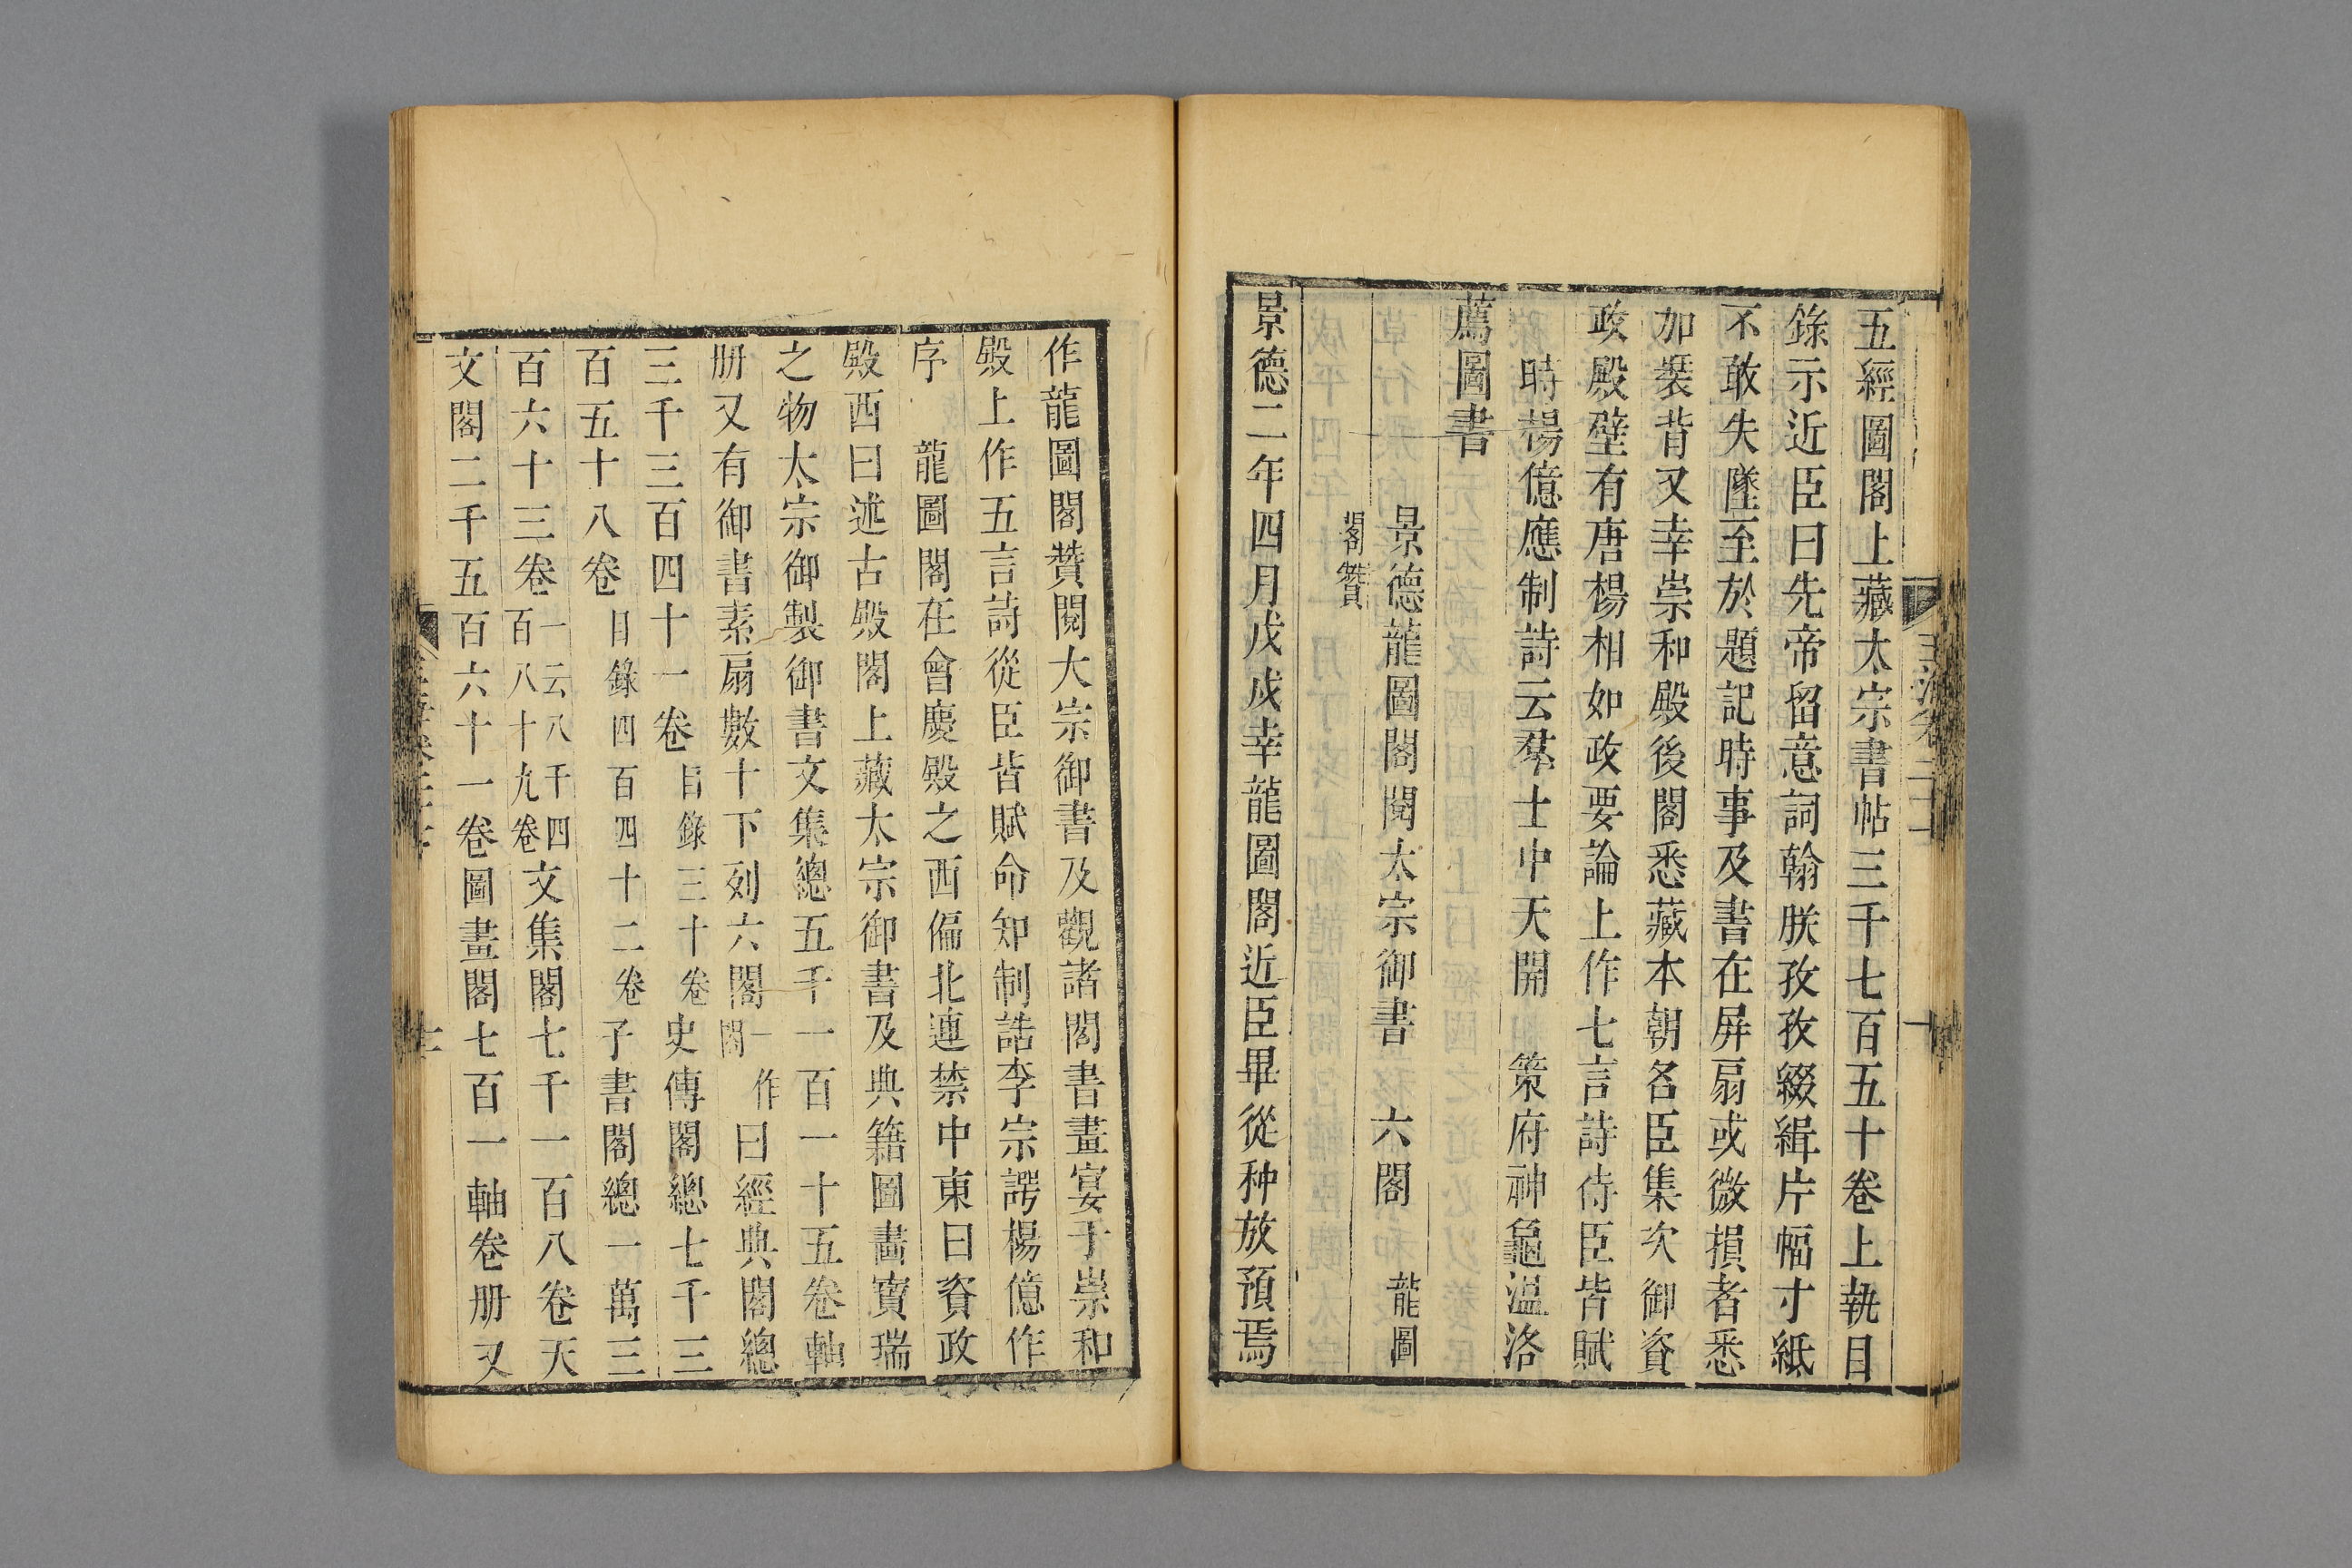 五經圖閣上藏太宗書帖三千七百五十卷上執目
錄示近臣曰先帝留意詞翰朕孜孜綴緝片幅寸紙
不敢失墜至於題記時事及書在屏扇或微損者悉
加裝背又幸崇和殿後閣悉藏本朝名臣集次御資
政殿壁有唐楊相如政要論上作七言詩侍臣皆賦
時楊億應制詩云羣士中天開 策府神龜溫洛
薦圖書
景德龍圖閣閱太宗御書 六閣 龍圖
閣贊
景德二年四月戊戌幸龍圖閣近臣畢從种放預焉
作龍圖閣贊閱大宗御書及觀諸閣書畫宴于崇和
殿上作五言詩從臣皆賦命知制誥李宗諤楊億作
序 龍圖閣在會慶殿之西偏北連禁中東曰資政
殿西曰述古殿閣上藏太宗御書及典籍圖畫寶瑞
之物太宗御製御書文集總五千一百一十五卷軸
册又有御書素扇數十下列六閣一作閣曰經典閣總
三千三百四十一卷目錄三十卷史傳閣總七千三
百五十八卷目錄四百四十二卷子書閣總一萬三
百六十三卷一云八千四百八十九卷文集閣七千一百八卷天
文閣二千五百六十一卷圖畫閣七百一軸卷册又